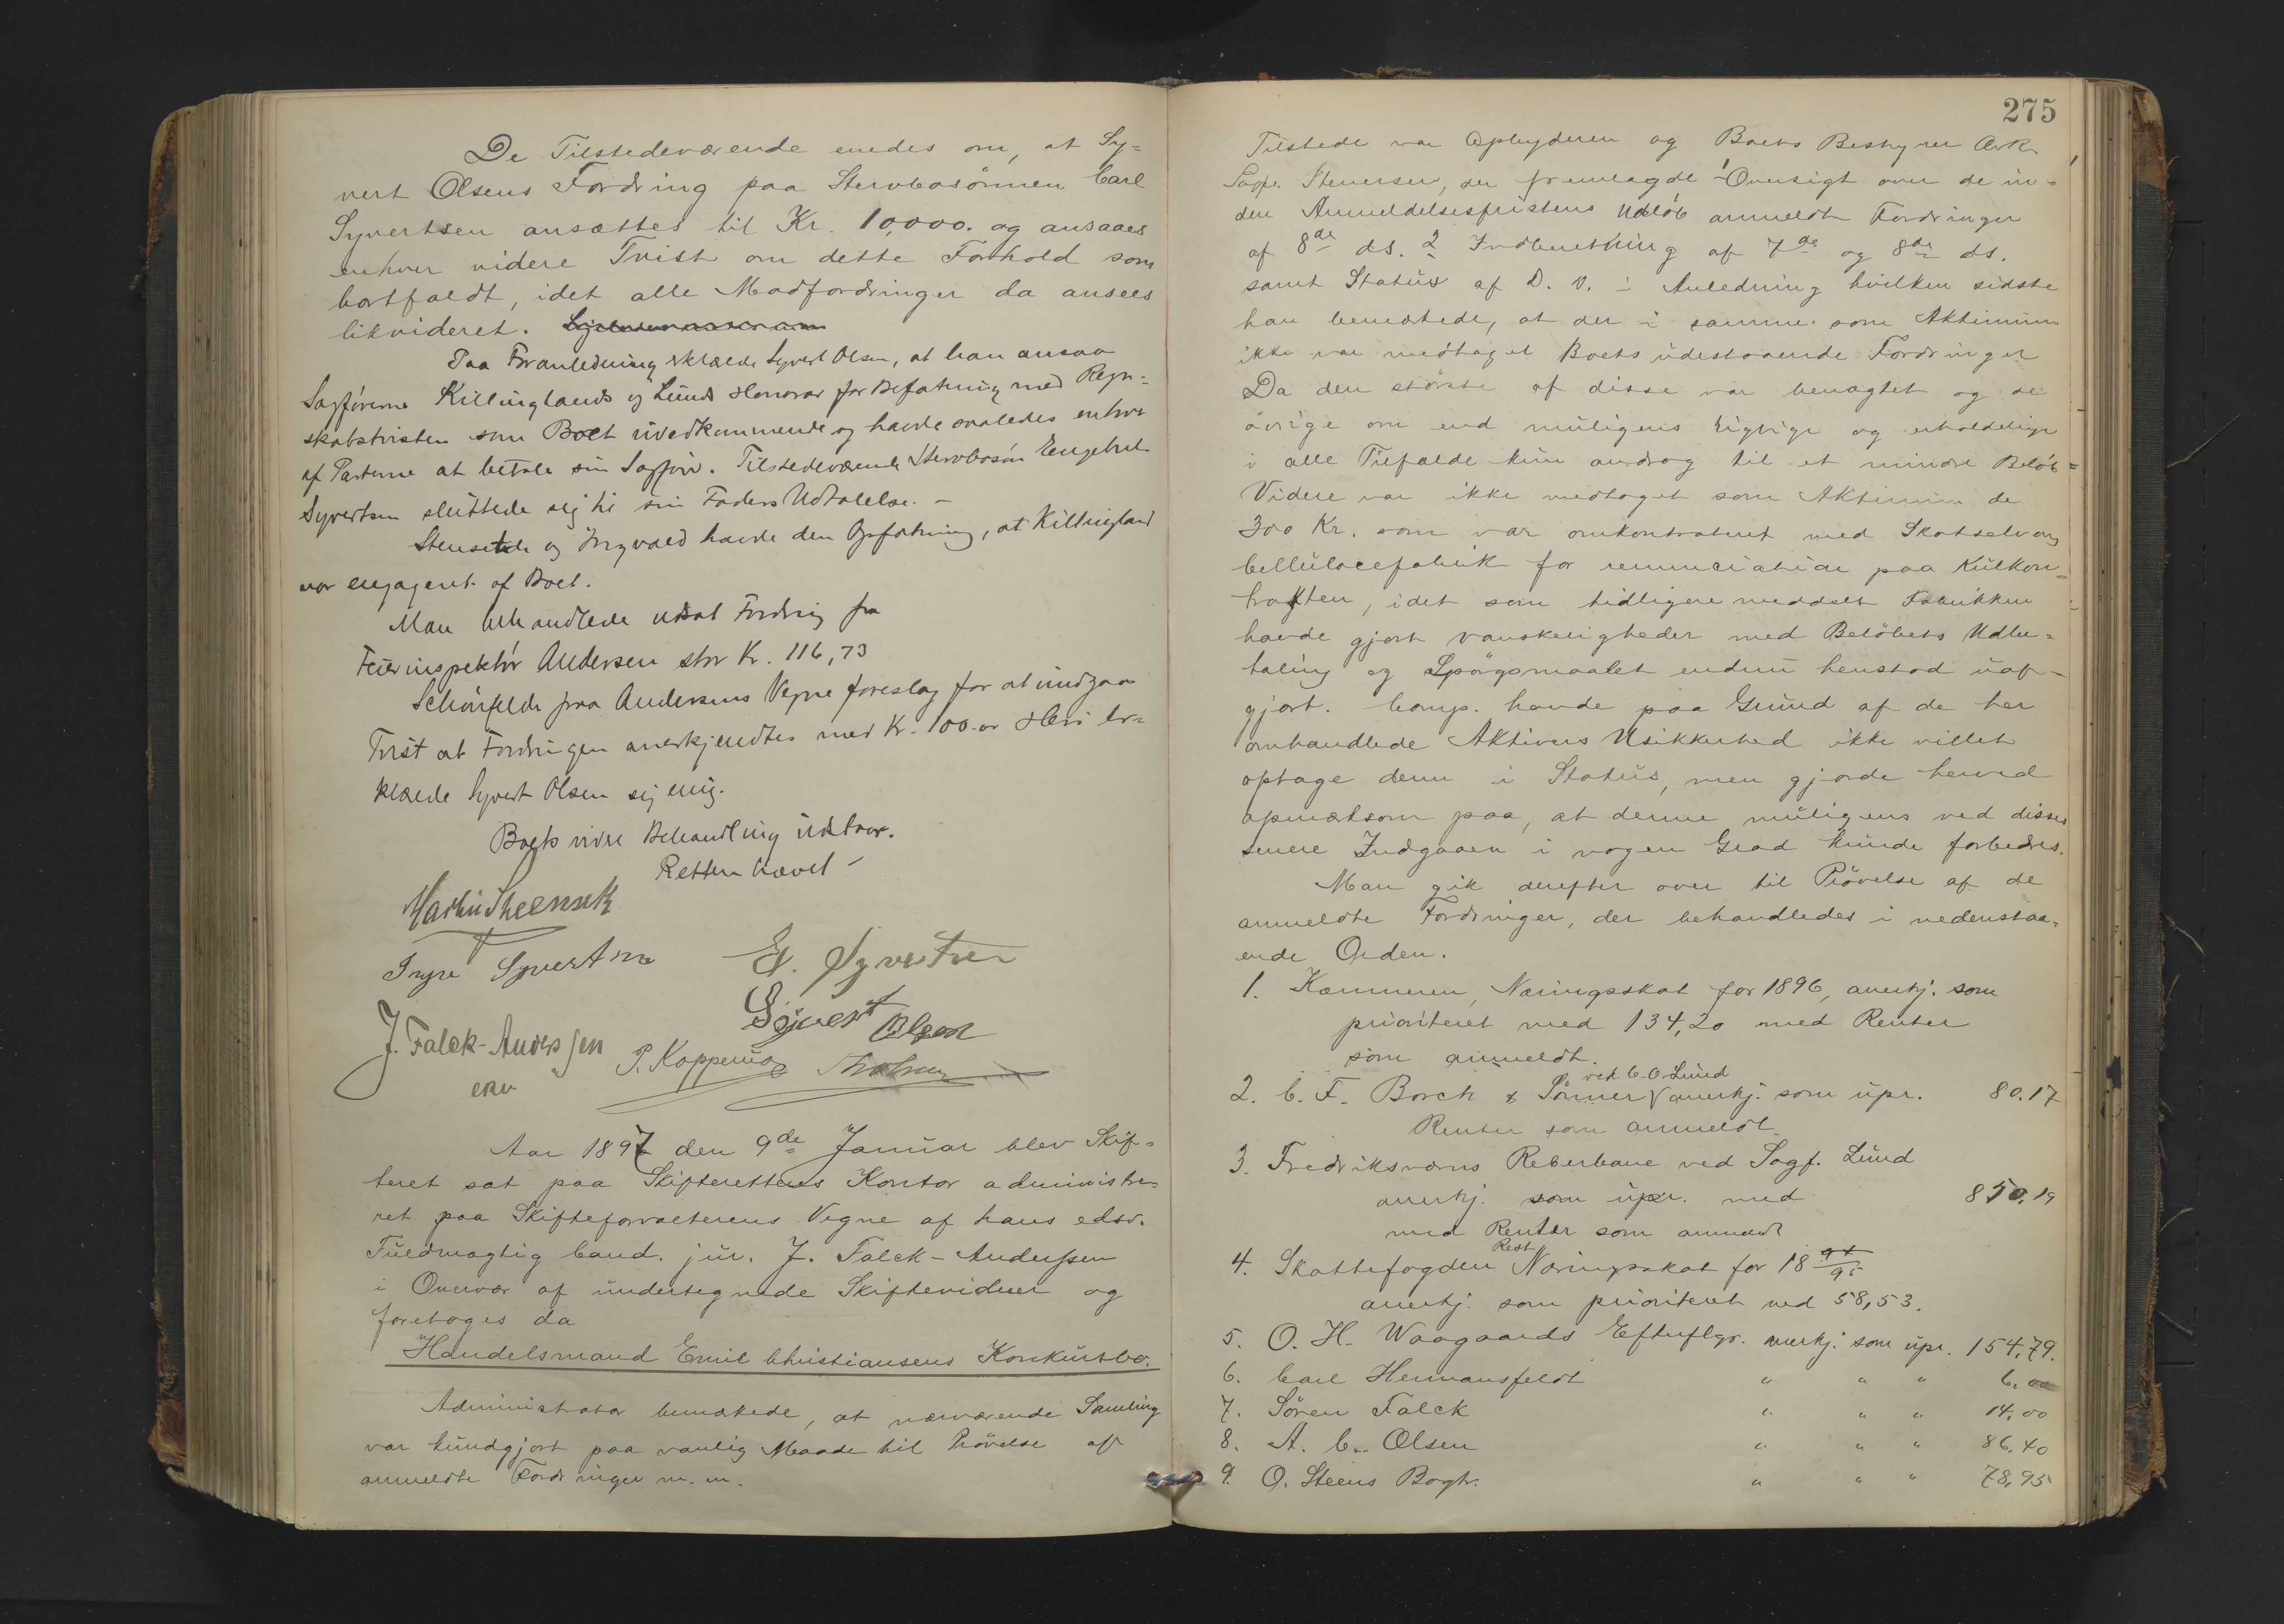 De Tilstedeværende enedes om, at Sy=
vert Olsens Fordring paa Stervbosönnen Carl
Syvertsen ansættes til Kr. 10,000. og ansaaes
enhver videre Tvist om dette Forhold som
bortfaldt, idet alle Modfordringer da ansees
likvideret.
Paa Foranledning erklærede Syvert Olsen, at han ansaa
Sagförerne Killinglands og Lunds Honorar for Befatning med Regn=
skabstvisten som Boet uvedkommende og havde saaledes enhver
af Parterne at betale sin Sagförer. Tilstedeværende Stervbosön Engebret
Syvertsen sluttede sig til sin Faders Udtalelse. -
og Ingvald havde den Opfatning, at Killingland
var engageret af Boet.
Man behandlede udsat Fordring fra
Feierinspektör Andersen stor Kr. 116,73
Schönfelde paa Andersens Vegne foreslog for at undgaa
Tvist at Fordringen anerkjendtes med Kr. 100.00 Heri er=
klærede Syvert Olsen sig enig.
Boets videre Behandling udstaar.
Retten hævet -
Syvertsen E. Syvertsen
Syvert Olsen
J. Falck-Anderssen P. Koppernæs
Aar 1897 den 9de Januar blev Skif=
teret sat paa Skifterettens Kontor administre=
ret paa Skifteforvalterens Vegne af hans edsv.
Fuldmægtig Cand. jur. J. Falck-Anderssen
i Overvær af undertegnede Skiftevidner og
foretoges da
Handelsmand Emil Christiansens Konkursbo.
Administrator bemærkede, at nærværende Samling
var kundgjort paa vanlig Maade til Prövelse af
anmeldte Fordringer m. m.
275
Tilstede var Opbyderen og Boets Bestyrer Ovr.
Sagf. Stenersen, der fremlagde 1 Oversigt over de in=
den Anmeldelsesfristens Udlöb anmeldte Fordringer
af 8de ds. 2 Indberetning af 7de og 8de ds.
samt Status af D. D. i Anledning hvilken sidste
han bemærkede, at der i samme som Aktivum
ikke var medtaget Boets udestaaende Fordringer
Da den störste af disse var benægtet og de
övrige om end muligens rigtige og erholdelige
i alle Tilfælde kun androg til et mindre Belöb=
Videre var ikke medtaget som Aktivum de
300 Kr. som var omkontraheret med Skotselven
Cellulosefabrik for renunciation paa Kulkon=
trakten, idet som tidligere meddelt Fabrikken
havde gjort Vanskeligheder med Belöbets Udbe=
taling og Spörgsmaalet endnu henstod uaf=
gjort. Comp. havde paa Grund af de her
omhandlede Aktivers Usikkerhed ikke villet
optage dem i Status, men gjorde herved
opmærksom paa, at denne muligens ved disses
senere Indgaaen i nogen Grad kunde forbedres.
Man gik derefter over til Prövelse af de
anmeldte Fordringer, der behandledes i nedenstaa=
ende Orden.
1. Kæmneren, Næringsskat for 1896, anerkj. som
prioriteret med 134,20 med Renter
som anmeldt.
ved C. O. Lund
2. C. F. Borch & Sönner anerkj. som upr. 80.17
Renter som anmeldt
3. Fredriksværns Reberbane ved Sagf. Lund
anerkj. som upr. med 850,19
med Renter som anmeldt
Rest
4. Skattefogden Næringsskat for 18 94/95
anerkj. som prioriteret med 58,53.
5. O. H. Waagaards Efterflgr. anerkj. som upr. 154,79.
6. Carl Hermansfeldt " " " 6,00
7. Sören Falck " " " 14,00
8. A. C. Olsen " " " 86,40
9. O. Steens Bogtr. " " " 78,95